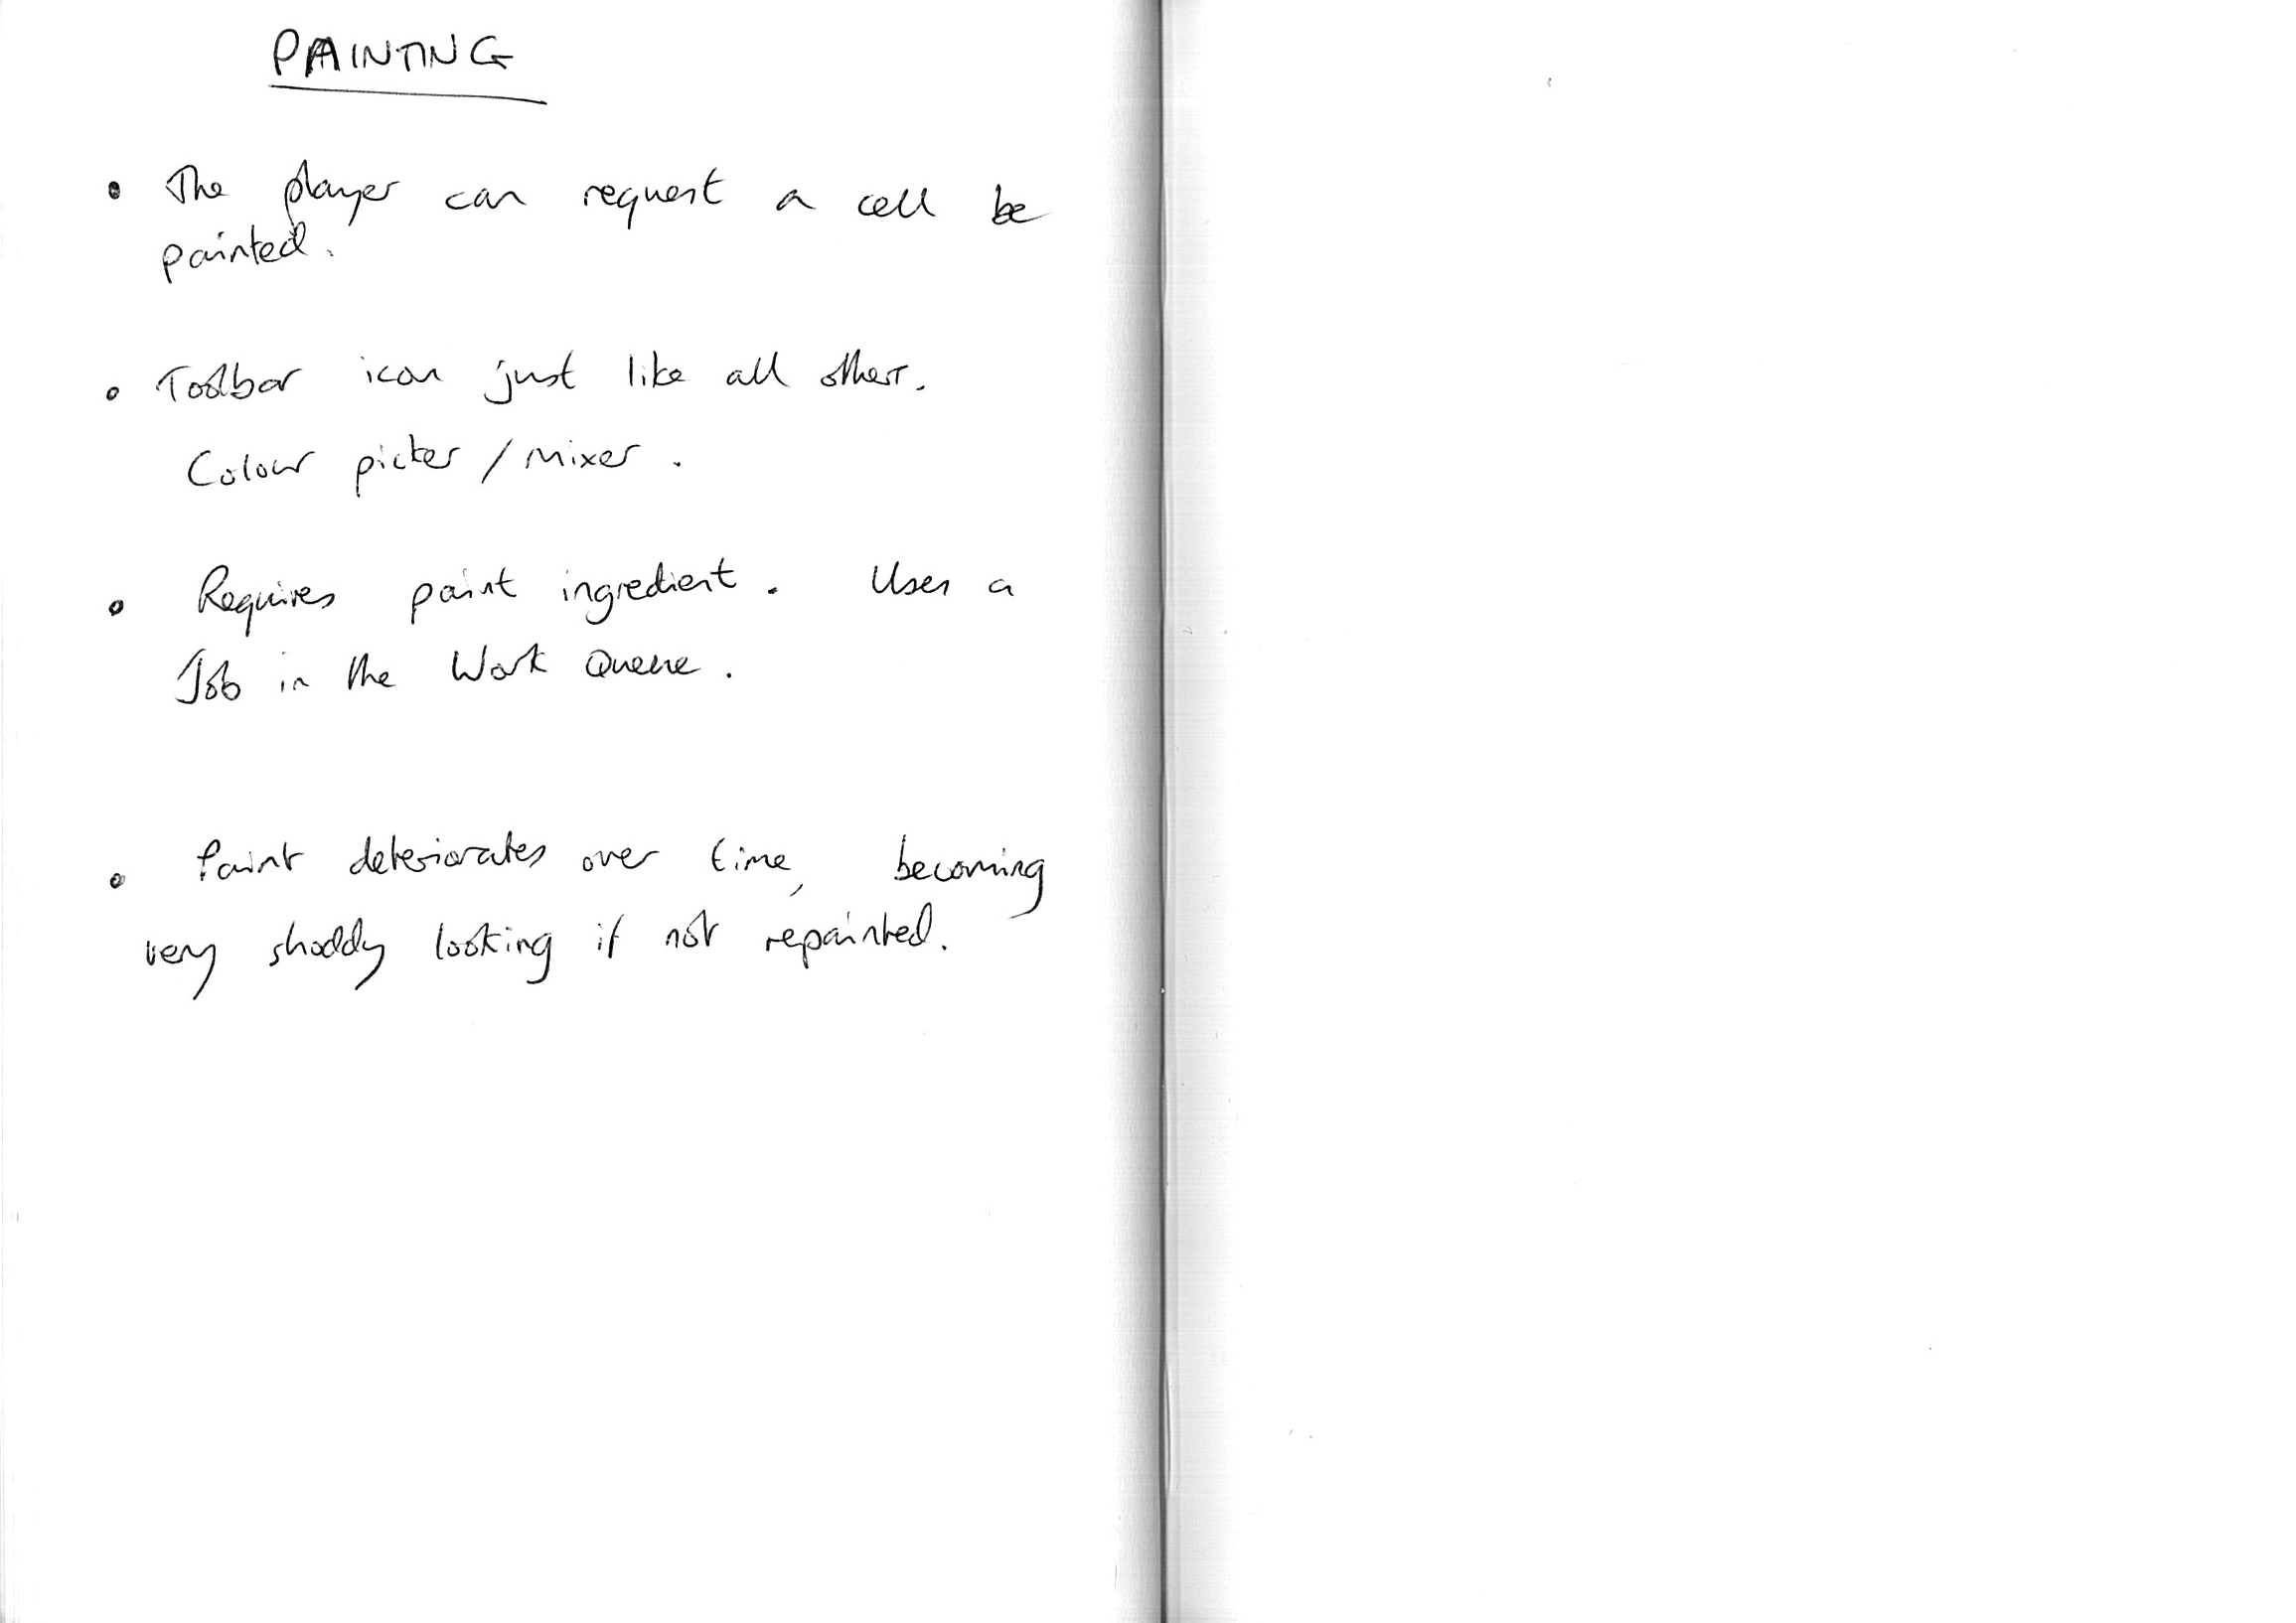 PAINTING
• The player can request a cell be
painted.
• Toolbar icon just like all others.
Colour picker / mixer.
• Requires paint ingredient. Uses a
Job in the Work Queue.
• Paint deteriorates over time, becoming
very shoddy looking if not repainted.